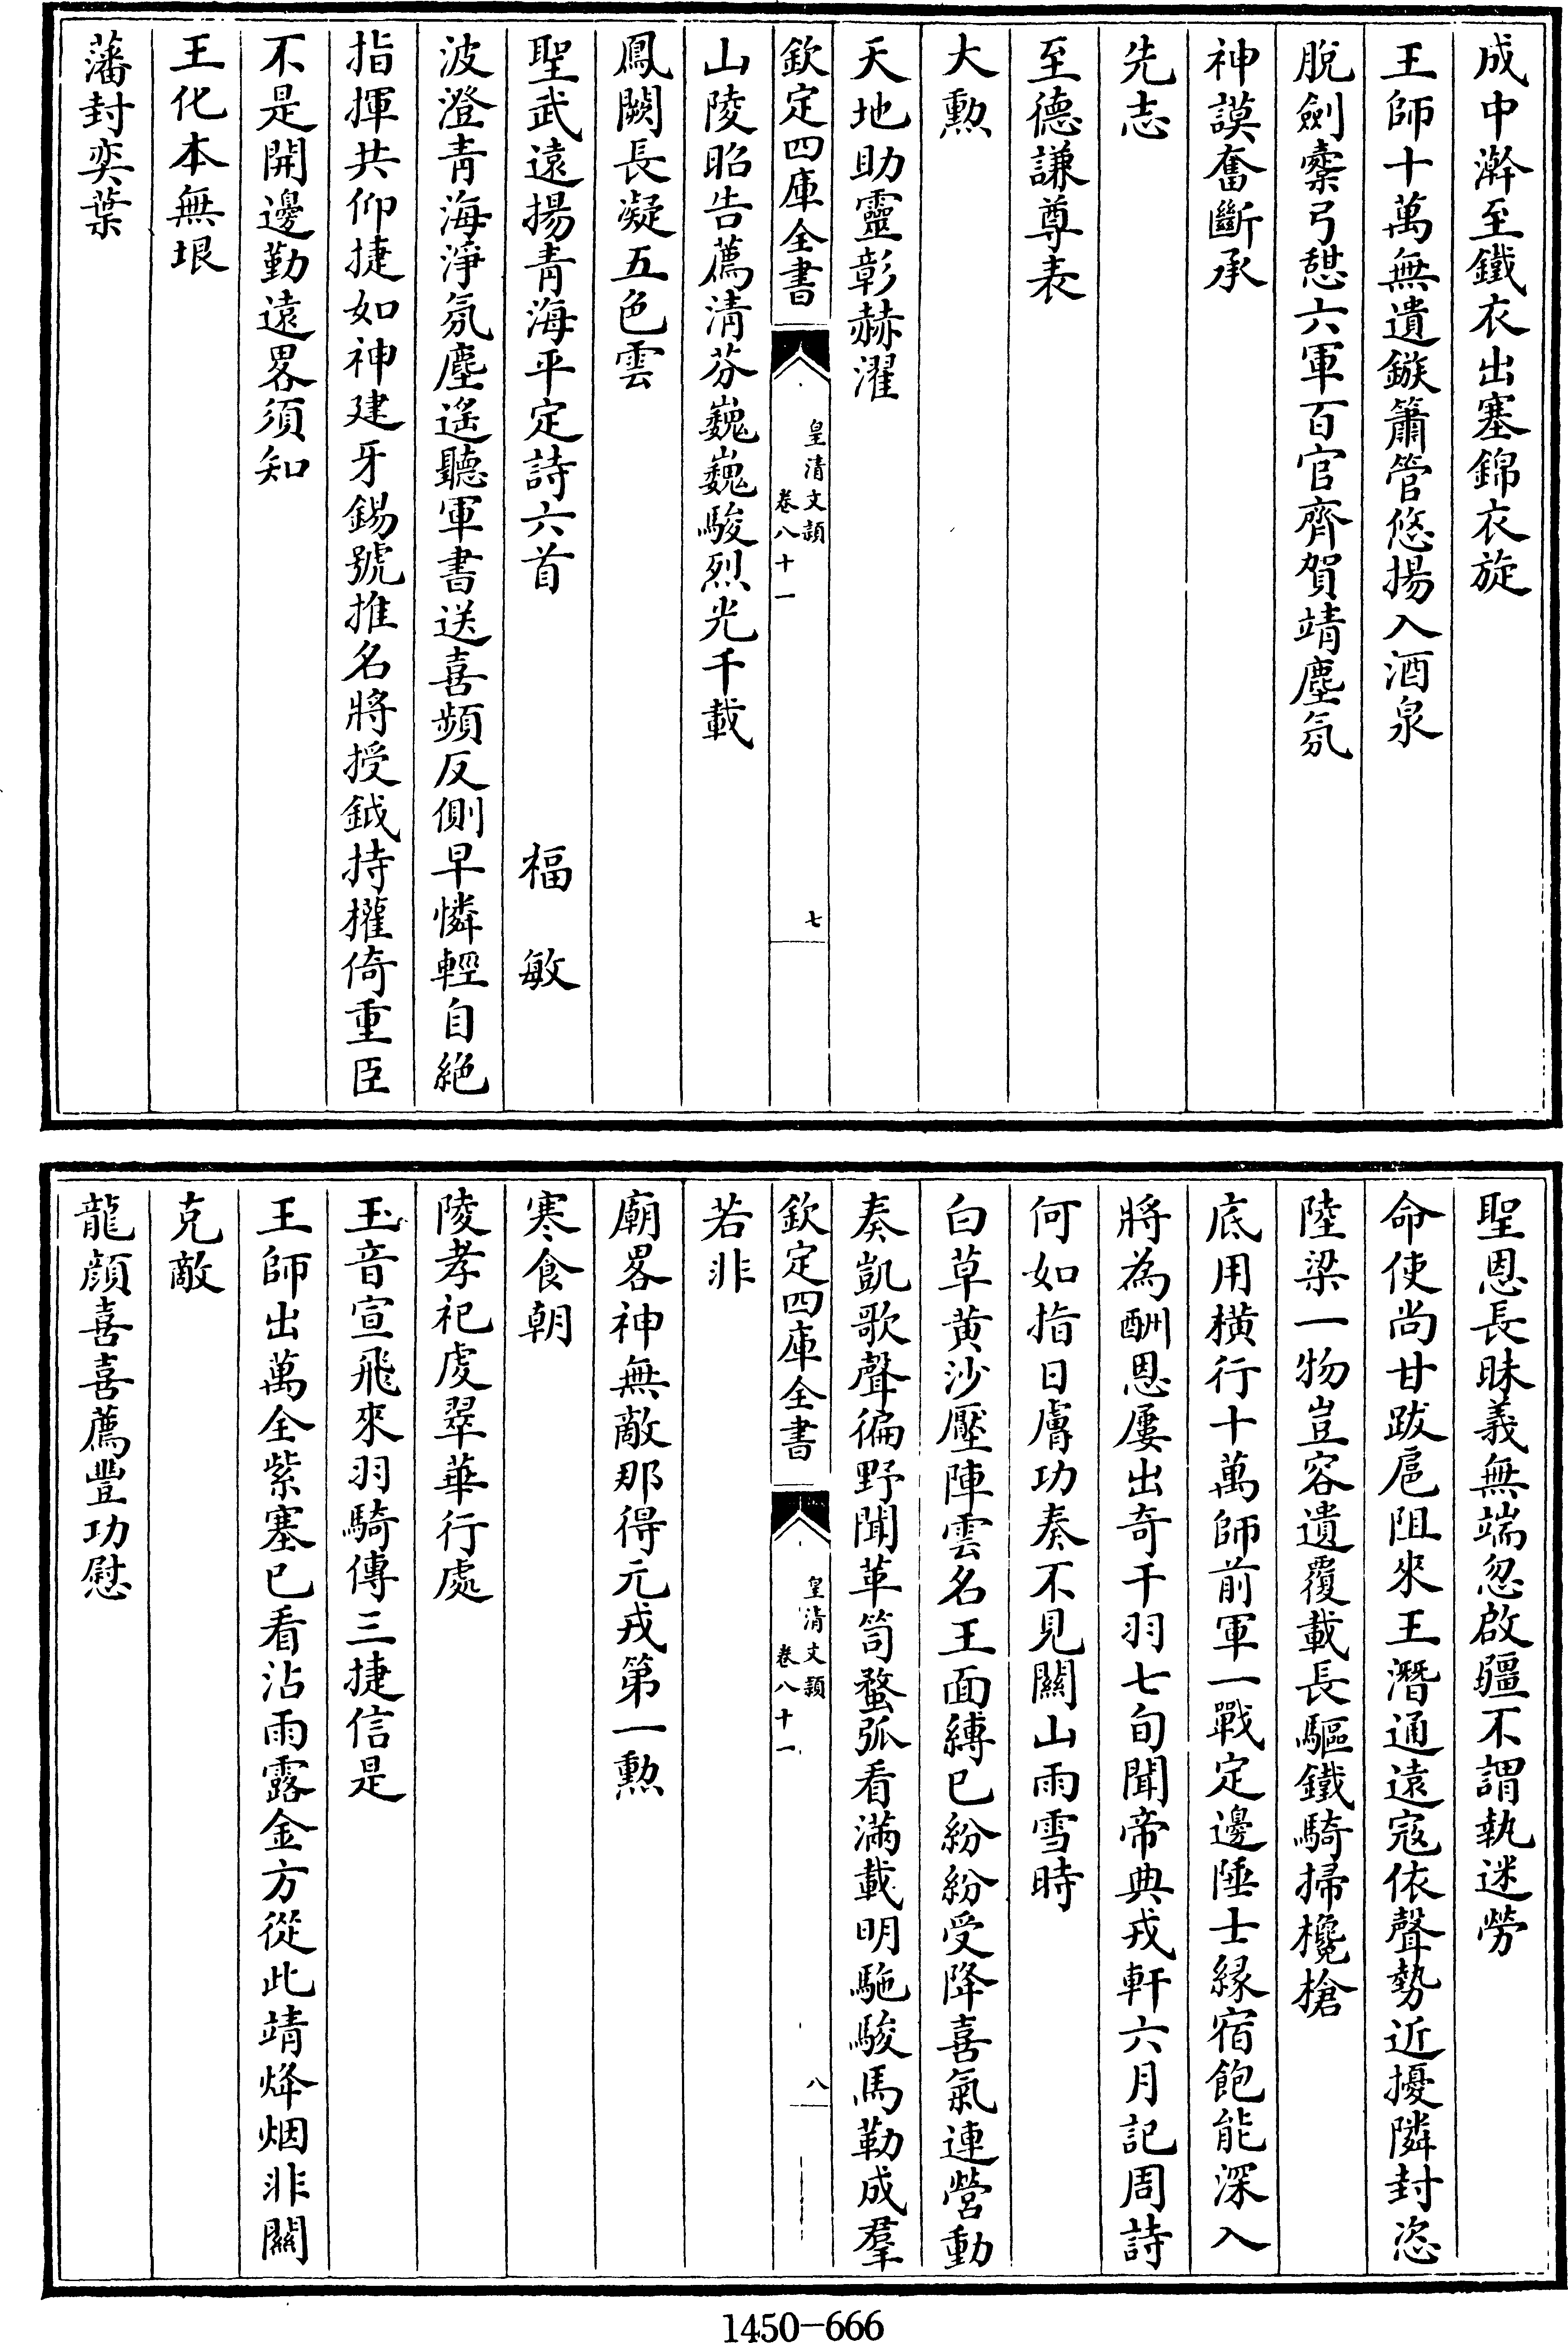 成中澣至鐵衣出塞錦衣旋
王師十萬無遺鏃簫管悠揚入酒泉
脫劍櫜弓憇六軍百官齊賀靖塵氛
神謨奮斷承
先志
至德謙尊表
大勲
天地助靈彰赫濯
欽定四庫全書
皇清文頴
卷八十一
七
山陵昭告薦清芬巍巍駿烈光千載
鳳闕長凝五色雲
聖武遠揚青海平定詩六首 福敏
波澄青海淨氛塵遙聽軍書送喜頻反側早憐輕自絶
指揮共仰捷如神建牙錫號推名將授鉞持權倚重臣
不是開邊勤遠畧須知
王化本無垠
藩封奕葉
聖恩長昧義無端忽啟疆不謂執迷勞
命使尚甘跋扈阻來王潛通遠寇依聲勢近擾隣封恣
陸梁一物豈容遺覆載長驅鐵騎掃欃槍
底用橫行十萬師前軍一戰定邊陲士緣宿飽能深入
將為酬恩屢出奇千羽七旬聞帝典戎軒六月記周詩
何如指日膚功奏不見關山雨雪時
白草黃沙壓陣雲名王面縛已紛紛受降喜氣連營動
奏凱歌聲徧野聞革笥蝥弧看滿載明駞駿馬勒成羣
欽定四庫全書
皇清文頴
卷八十一
八
若非
廟畧神無敵那得元戎第一勲
寒食朝
陵孝祀虔翠華行處
玉音宣飛來羽騎傳三捷信是
王師出萬全紫塞已看沾雨露金方從此靖烽烟非關
克敵
龍顏喜喜薦豐功慰
1450-666